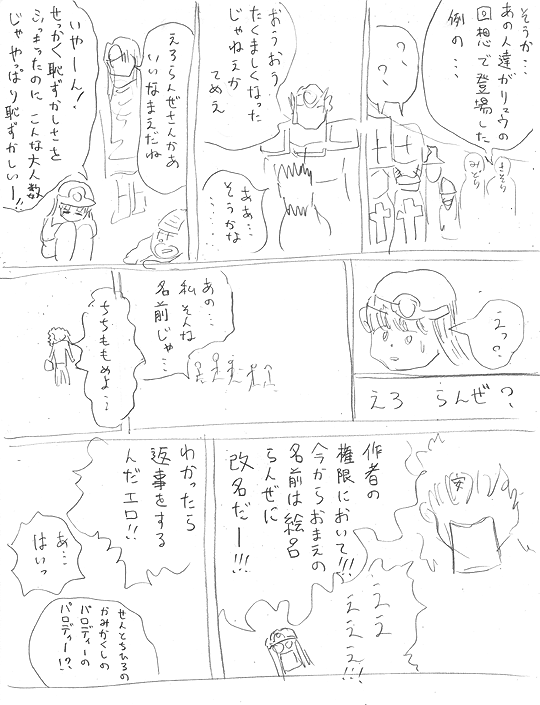 そうか…
あの人達がリュウの
回想で登場した
例の…
きそら
みどり
?、
?、
おうおう
たくましくなった
じゃねえか
てめえ
ああ…
そうかな
……
えろらんぜさんかあ
いいなまえだね
いやーん!
せっかく恥ずかしさを
こんな大人数
じゃやっぱり恥ずかしいー!!
えっ?
えろ らんぜ?
あの…
私そんな
名前じゃ…
ちちももめよ…
作者の
権限において!!!
今からおまえの
名前は絵名
らんぜに
改名だー!!!
ええ
えええ!!!
わかったら
返事をする
んだエロ!!
あ…
はいっ
せんとちひろの
かみかくしの
パロディーの
パロディー!?